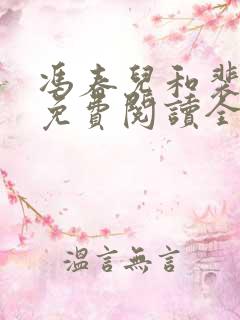 馮春兒和裴
免費閱讀全
溫言無言